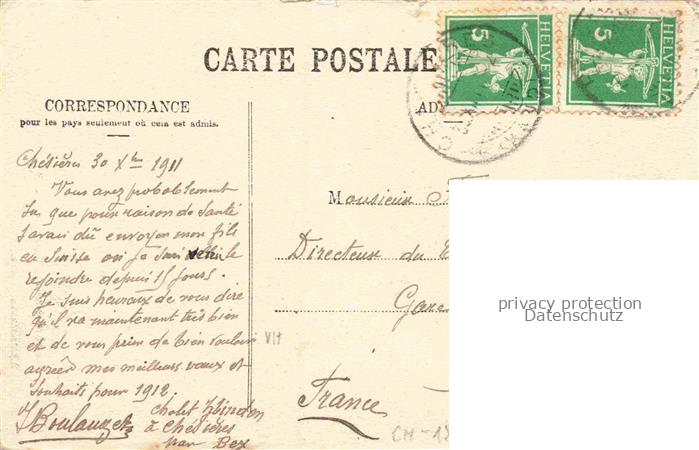 CARTE POSTALE
HELVETIA
5
HELVETIA
5
CORRESPONDANCE
pour les pays seulement où cela est admis.
Chésières 30 Xbre 1911
Vous avez probablement
su que pour raison de santé
j'avais dû envoyer mon fils
en Suisse où je suis venu le
rejoindre depuis 15 jours.
Je suis heureux de vous dire
qu'il va maintenant très bien
et de vous prier de bien vouloir
agréer mes meilleurs vœux et
souhaits pour 1912
Chalet
à Chésières
sur Bex
AD
Monsieur
Directeur du
Gare
France
VII
CH-18
privacy protection
Datenschutz